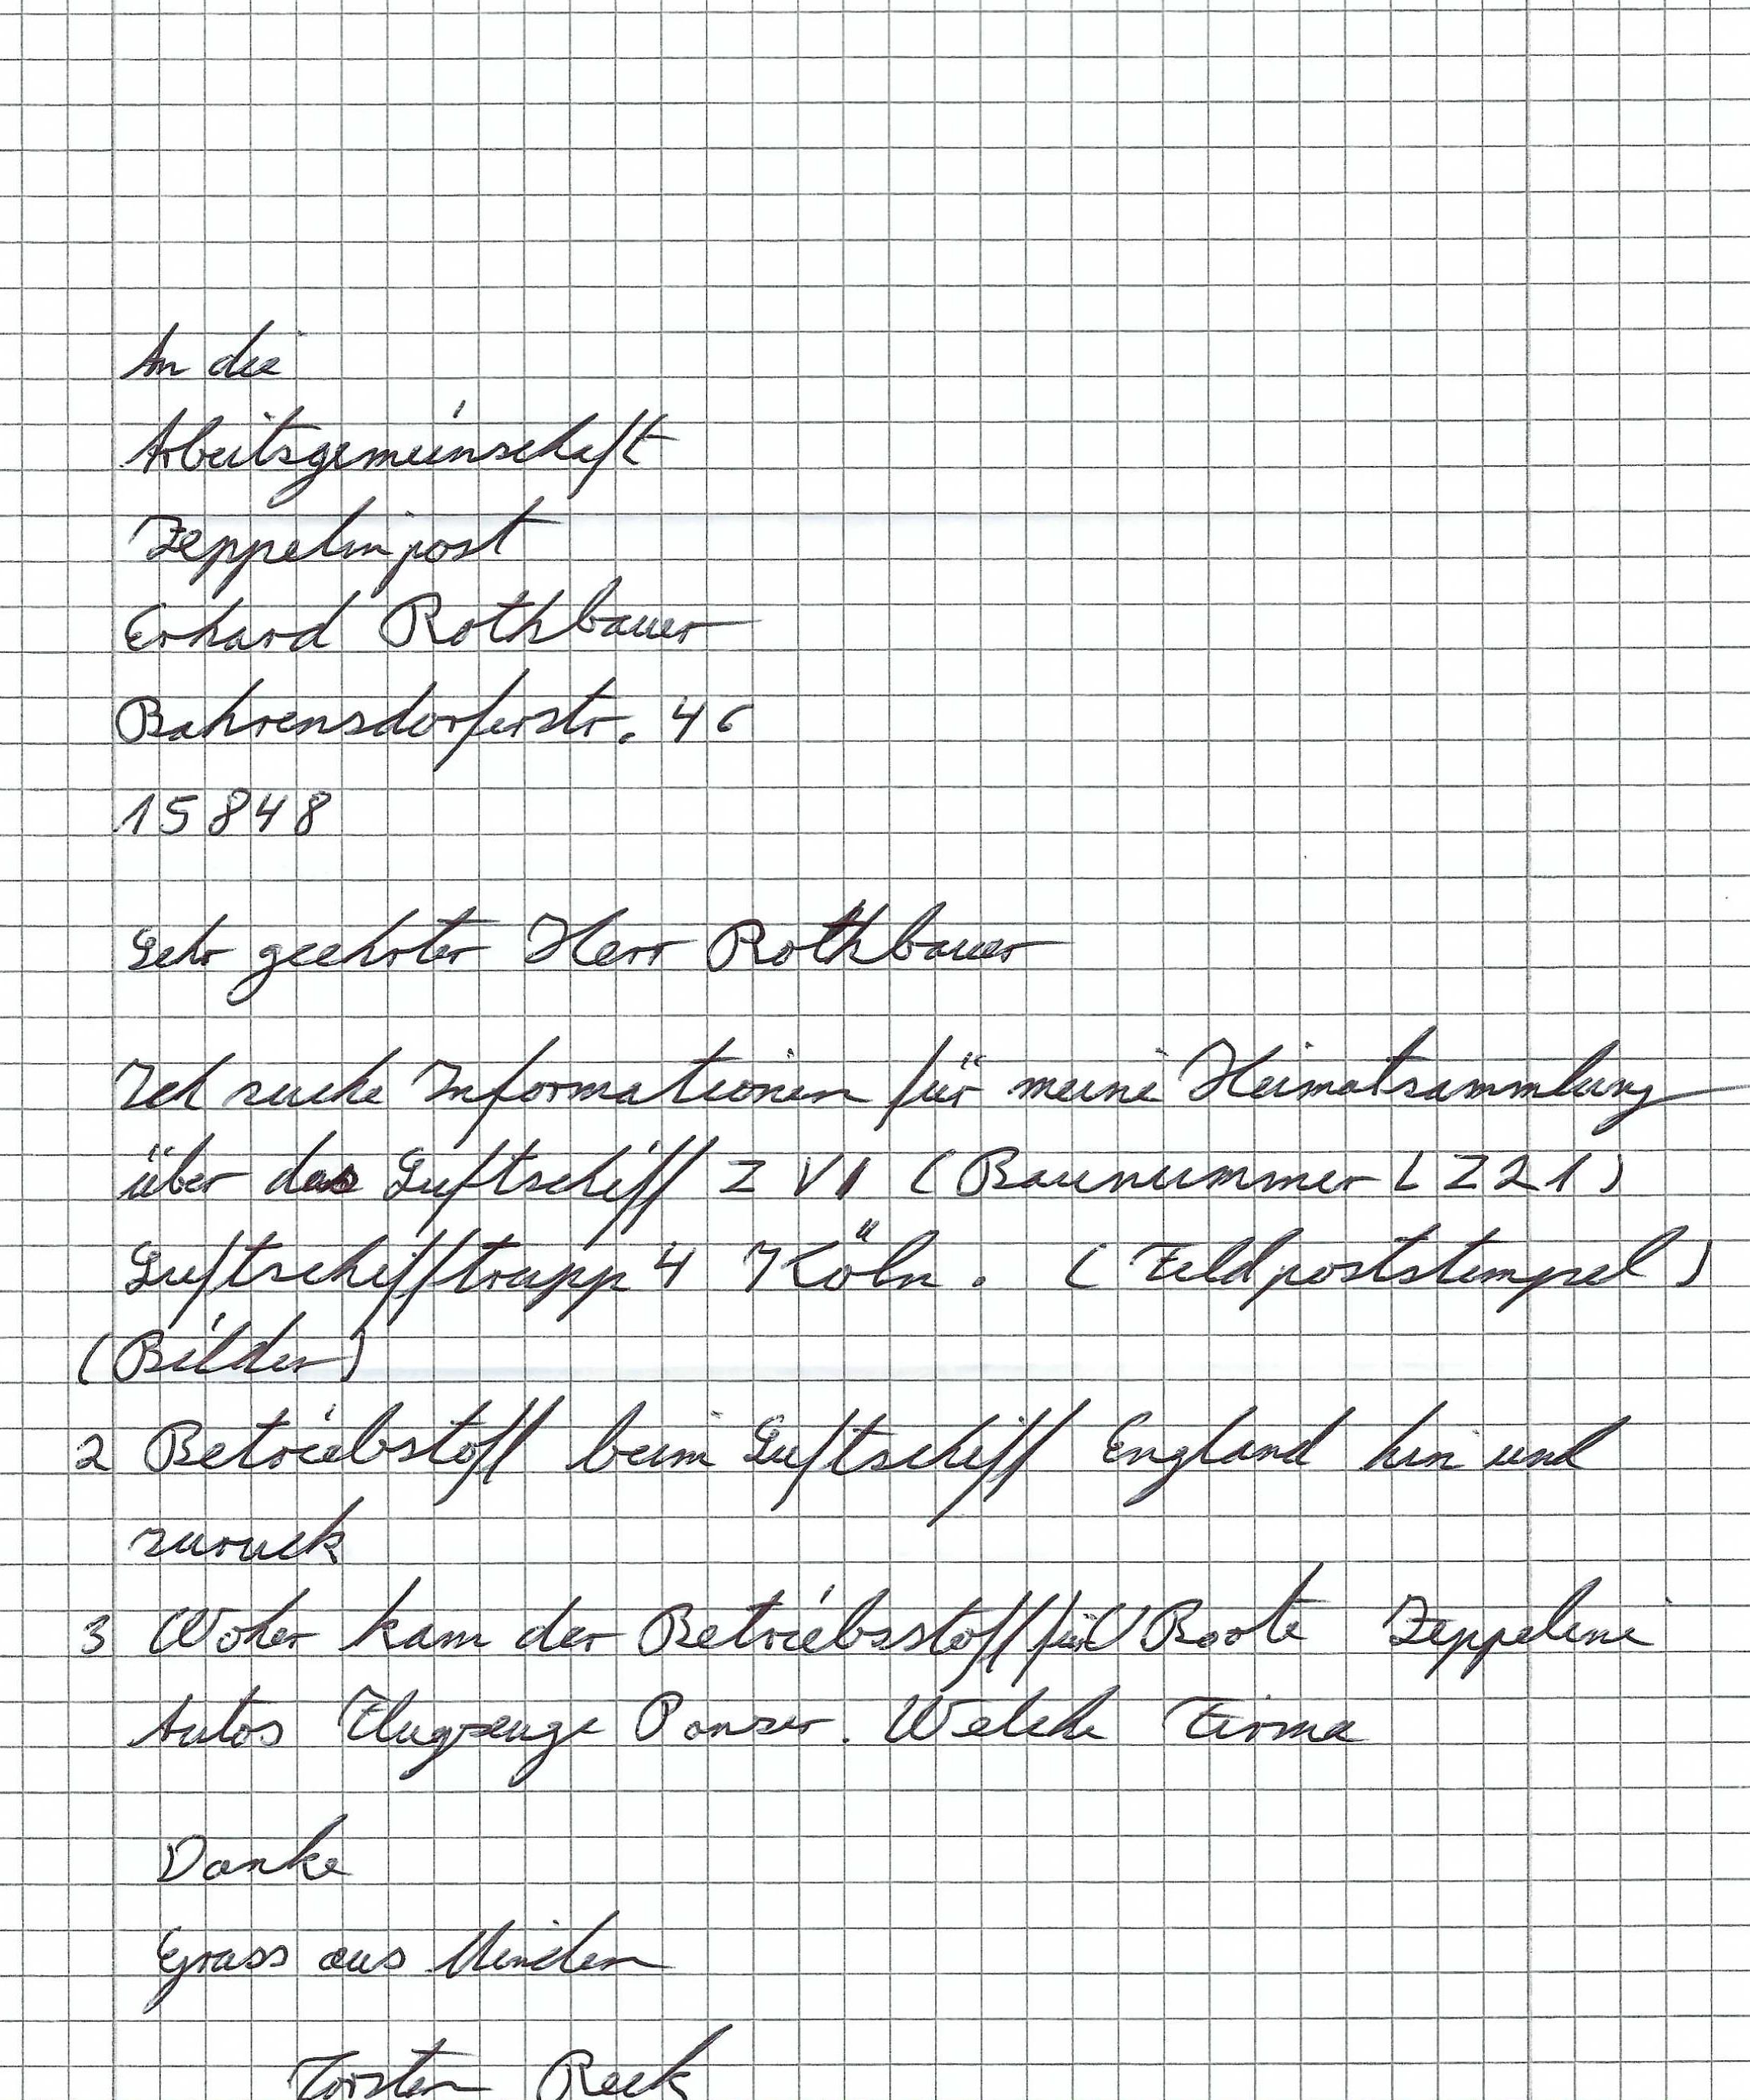 An die
Arbeitsgemeinschaft
Zeppelinpost
Erhard Rothbauer
Bahrensdorferstr. 46
15848
Sehr geehrter Herr Rothbauer
Ich suche Informationen für meine Heimatsammlung
über das Luftschiff Z VI (Baunummer LZ21)
Luftschifftrupp 4 Köln. (Feldpoststempel)
(Bilder)
2 Betriebstoff beim Luftschiff England hin und
zuruck
3 Woher kam der Betriebsstoff für U Boote Zeppeline
Autos Flugzeuge Panzer. Welche Firma
Danke
Gruss aus Minden
Torsten Reek